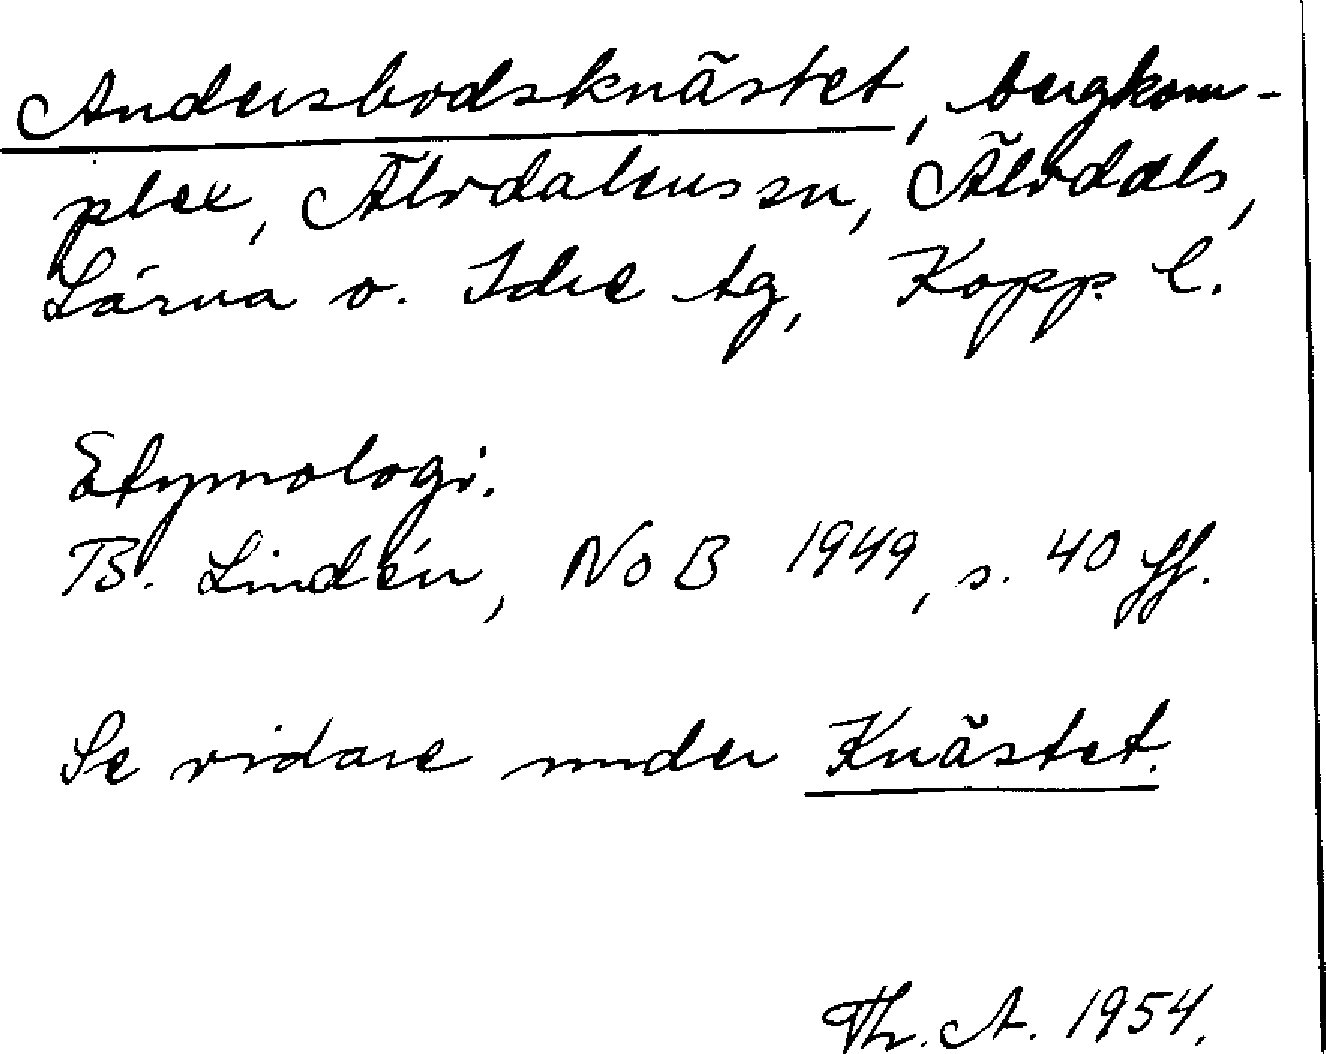 Andersbodsknästet, bergkom-
plex, Älvdalens sn, Älvdals,
Särna o. Idre tg, Kopp. l.
Etymologi.
B. Lindén, NoB 1949, s. 40 ff.
Se vidare under Knästet.
Th. A. 1954.